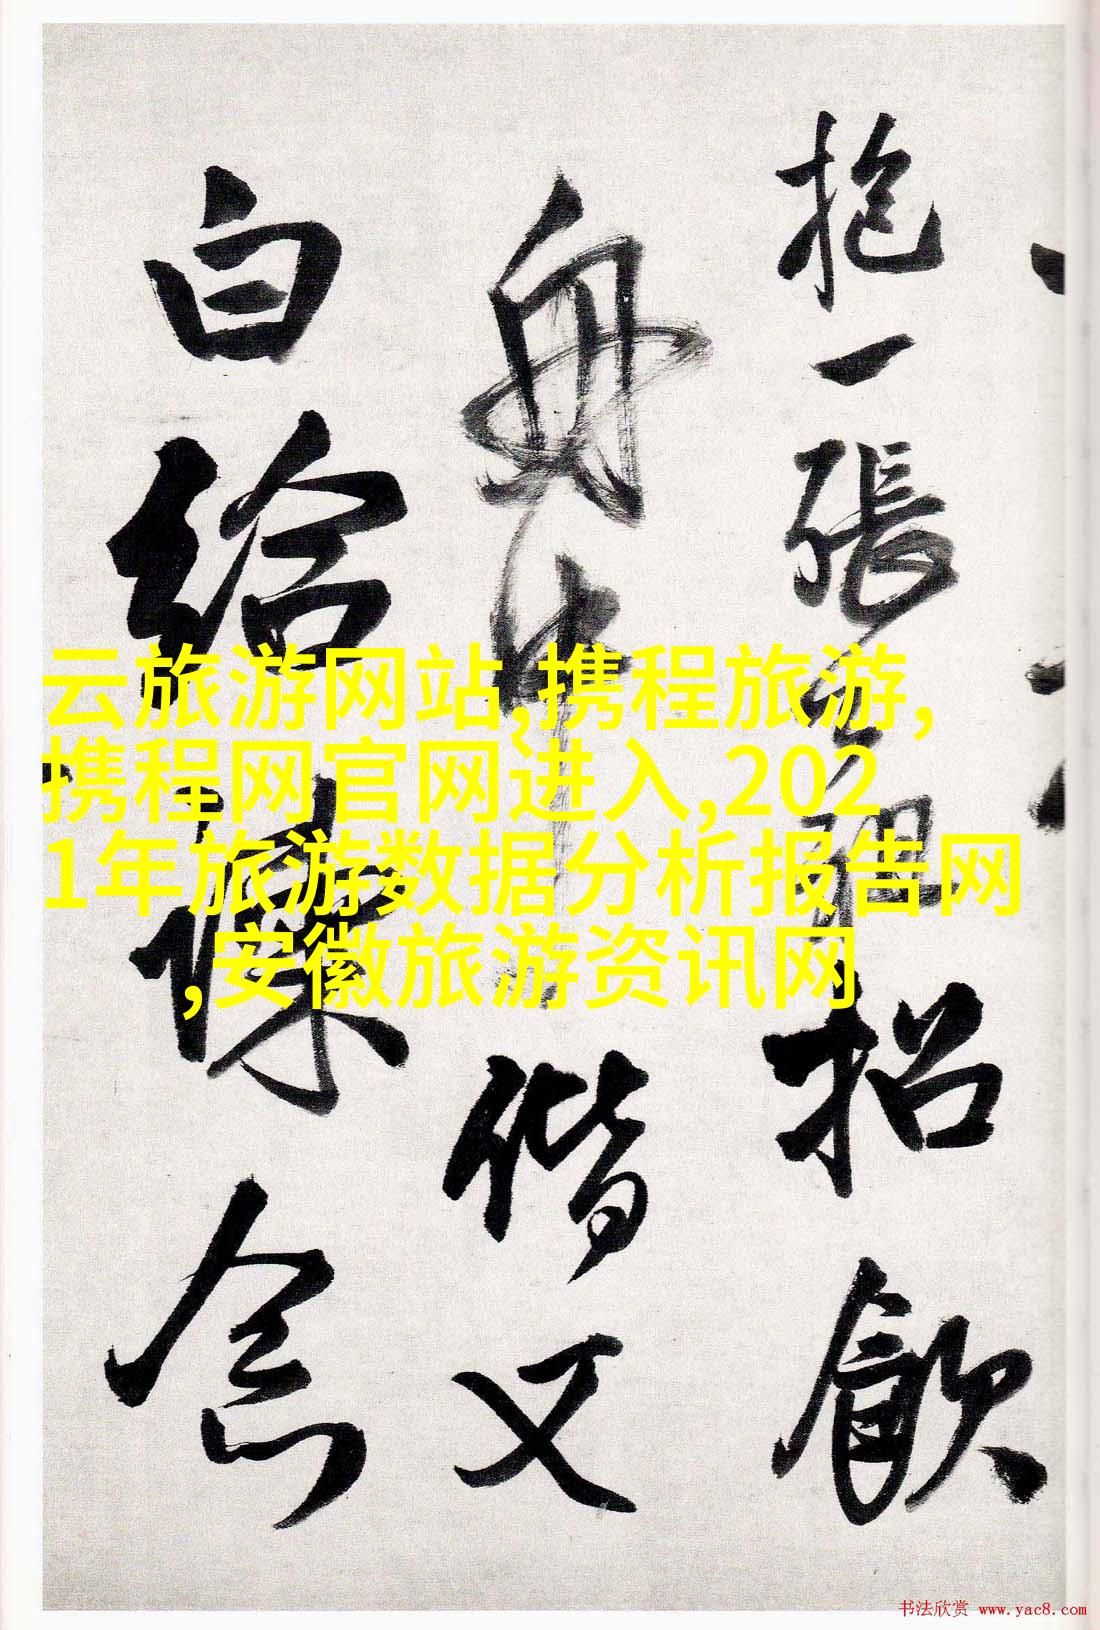 抱一張公紹招飲
舟中偕又
白給諫念
云旅游网站,携程旅游,
携程网官网进入,202
1年旅游数据分析报告网
,安徽旅游资讯网
书法欣赏 www.yac8.com